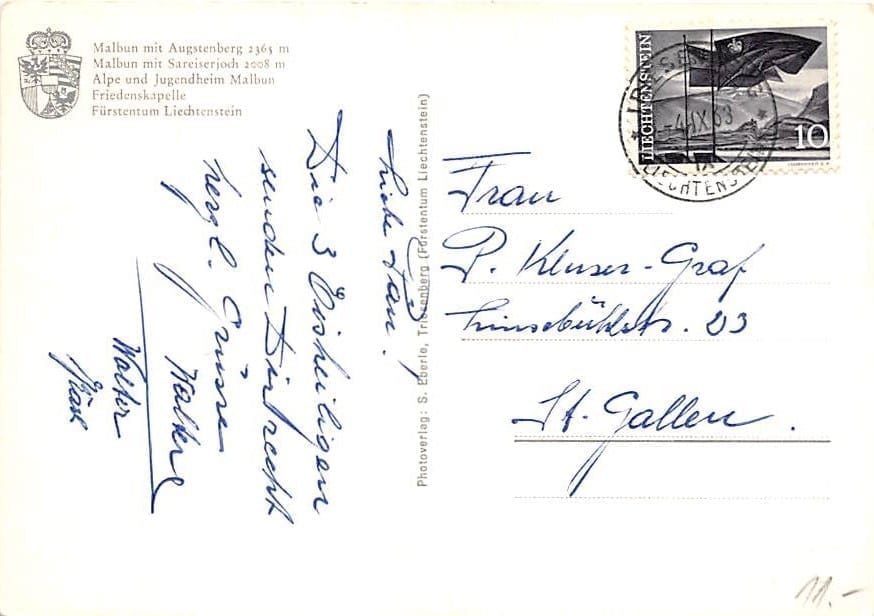 Malbun mit Augstenberg 2365 m
Malbun mit Sareiserjoch 2008 m
Alpe und Jugendheim Malbun
Friedenskapelle
Fürstentum Liechtenstein
Die 3 Eisheiligen
senden Dir recht
herzl. Grüsse
Walter
Walter
Photoverlag: S. Eberle, Triesenberg (Fürstentum Liechtenstein)
LIECHTENSTEIN
10
TRIESENBERG
-4.IX.63
LIECHTENSTEIN
Frau
P. Kluser-Graf
Linsebühlstr. 23
St. Gallen.
11.-